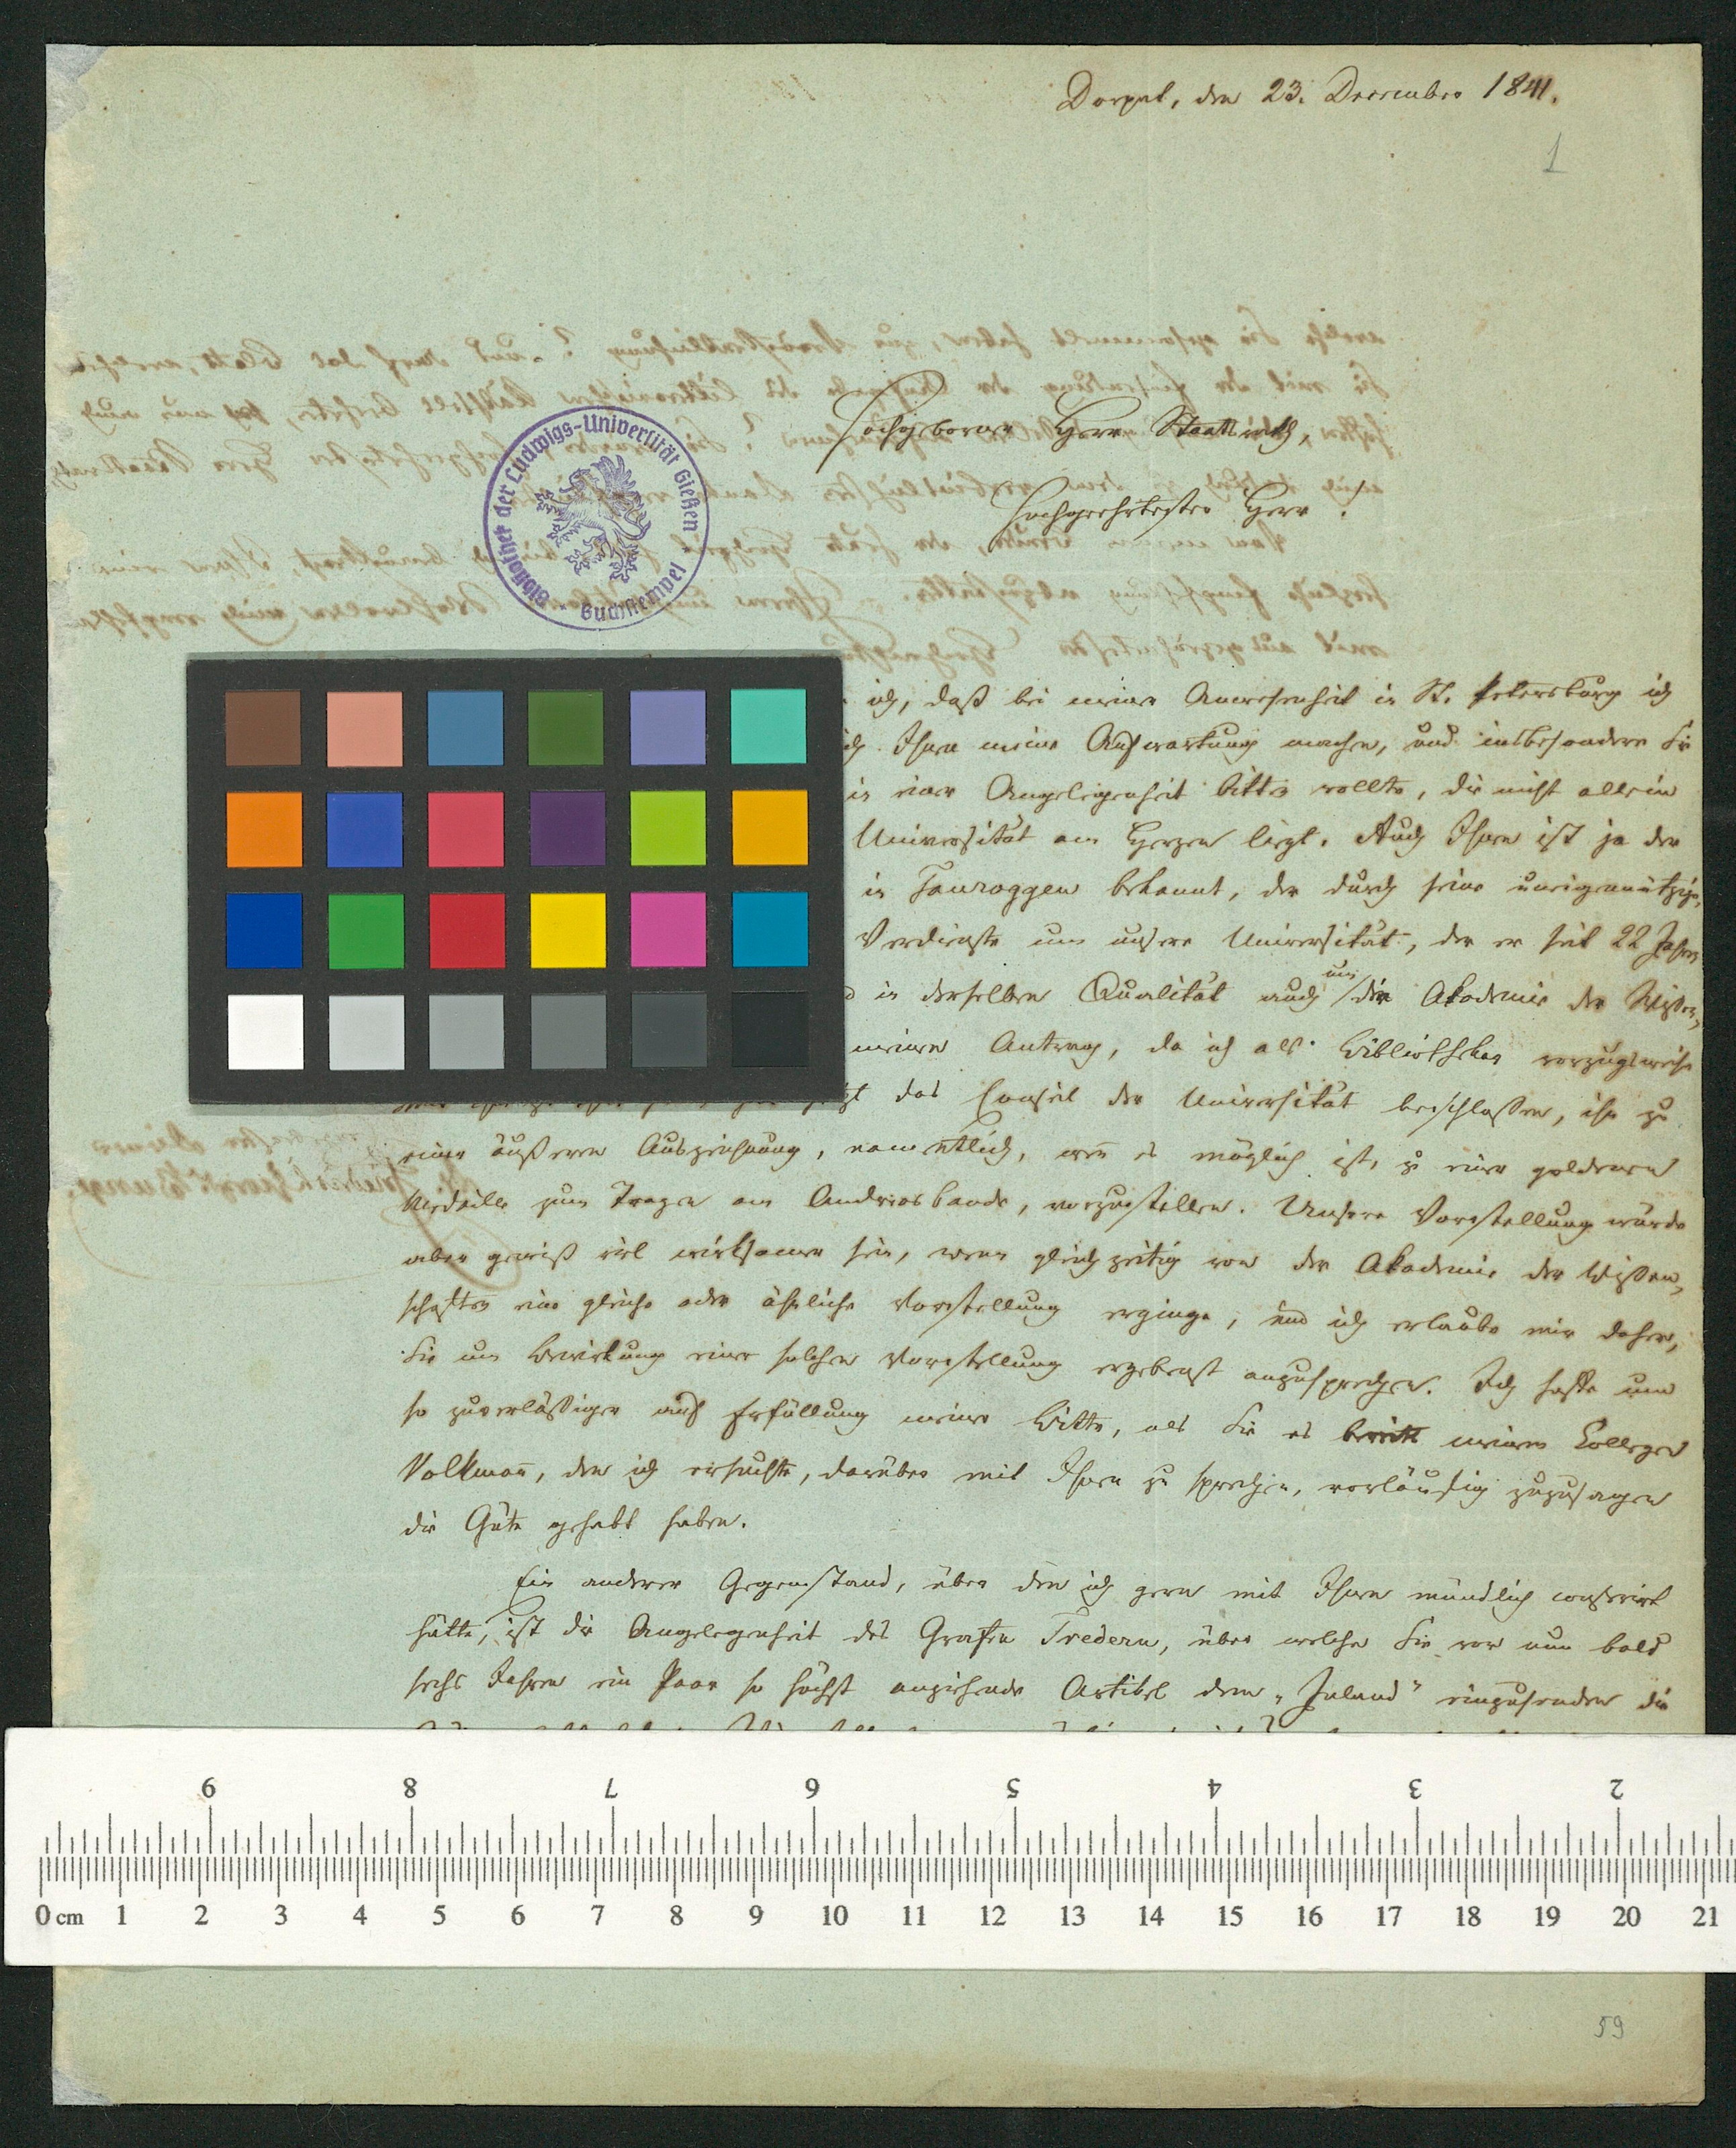 Dorpat, den 23. December 1841.
1
Hochgeborner Herr Staatsrath,
Hochgeehrtester Herr!
Bibliothek der Ludwigs-Universität Gießen
Buchstempel
ich, daß bei meiner Anwesenheit in St. Petersburg ich
Ihnen meine Aufwartung machen, und insbesondere Sie
in einer Angelegenheit bitten wollte, die nicht allein
Universität am Herzen liegt. Auch Ihnen ist ja der
in Tauroggen bekannt, der durch seine uneigennützige,
Verdienste um unsere Universität, der er seit 22 Jahren
in derselben Qualität auch um die Akademie der Wissen,
meinen Antrag, da ich als Bibliothekar vorzugsweise
das Conseil der Universität beschlossen, ihn zu
einer äußeren Auszeichnung, namentlich, wenn es möglich ist, zu einer goldenen
Medaille zum Tragen am Andreasbande, vorzustellen. Unsere Vorstellung würde
aber gewiß viel wirksamer sein, wenn gleichzeitig von der Akademie der Wissen,
schaften eine gleiche oder ähnliche Vorstellung erginge, und ich erlaube mir daher,
Sie um Bewirkung einer solchen Vorstellung ergebenst anzusprechen. Ich hoffe um
so zuverlässiger auf Erfüllung meiner Bitte, als Sie es bereits meinem Collegen
Volkmann, den ich ersuchte, darüber mit Ihnen zu sprechen, vorläufig zuzusagen
die Güte gehabt haben.
Ein anderer Gegenstand, über den ich gern mit Ihnen mündlich conferirt
hätte, ist die Angelegenheit des Grafen Tredern, über welche Sie vor nun bald
sechs Jahren ein Paar so höchst anziehende Artikel dem „Inland" einzusenden die
9 8 7 6 5 4 3 2
0 cm 1 2 3 4 5 6 7 8 9 10 11 12 13 14 15 16 17 18 19 20 21
59